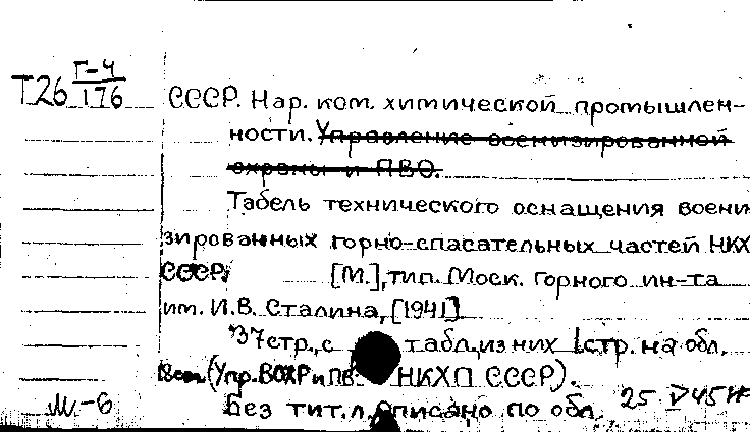 Г-4
Т26 176
СССР. Нар. ком. химической промышлен-
ности. Управление военизированной
охраны и ПВО.
Табель технического оснащения воени
зированных горно-спасательных частей НКХ
СССР. [М.], тип. Моск. Горного ин-та
им. И.В. Сталина, [1941]
37 стр., с табл., из них 1 стр. на обл.
(Упр. ВОХР и ПВ НКХП СССР).
Без тит. л. Описано по обл. 25. V 45
М-6